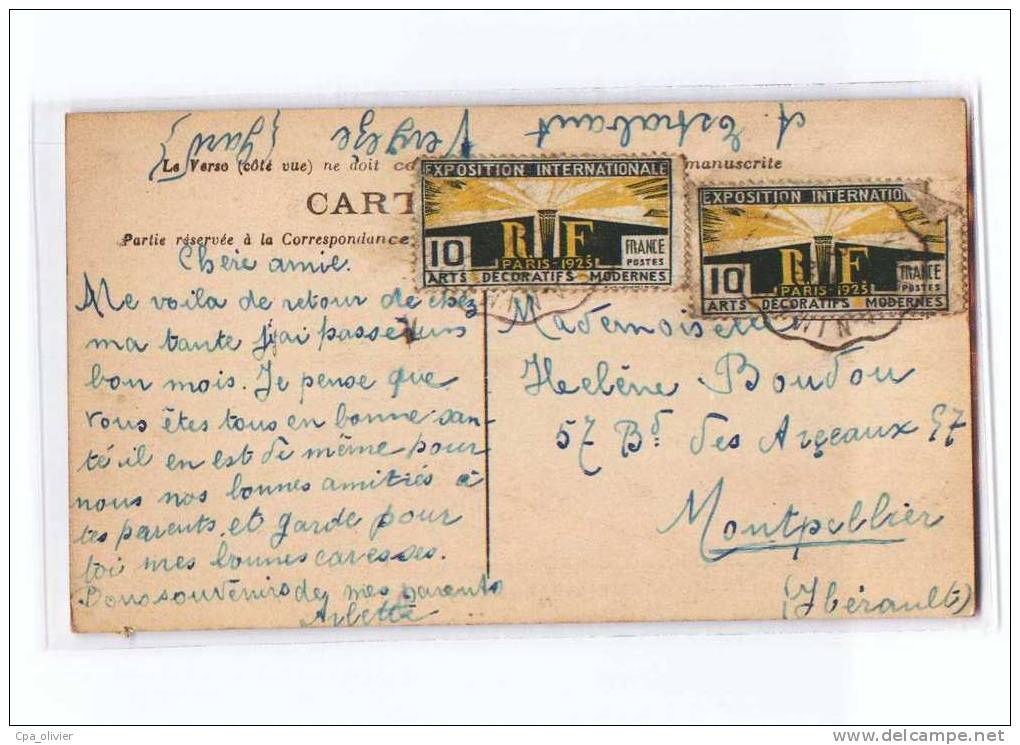 A Estrabaut Vergèze
(Gard)
Le Verso (côté vue) ne doit manuscrite
CART
Partie réservée à la Correspondance
EXPOSITION INTERNATIONALE
10 RF FRANCE
PARIS-1925 POSTES
ARTS DÉCORATIFS MODERNES
EXPOSITION INTERNATION
10 RF FRANCE
PARIS-1925 POSTES
ARTS DÉCORATIFS MODERNES
NIM
Chère amie.
Me voila de retour de chez
ma tante j'ai passé un
bon mois. Je pense que
vous êtes tous en bonne san-
té il en est de même pour
nous nos bonnes amitiés à
tes parents et garde pour
toi mes bonnes caresses.
Bons souvenirs de mes parents
Arlette
Mademoiselle
Heelène Boudou
57 Bd des Arçeaux 57
Montpellier
(Hérault)
Cpa_olivier
www.delcampe.net